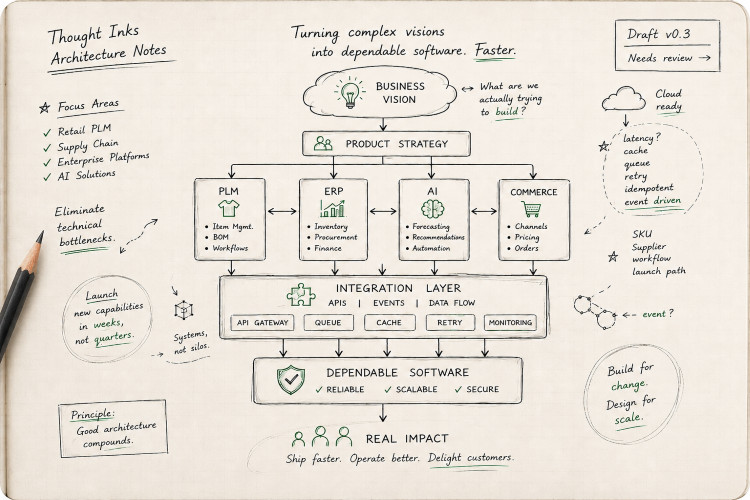 Thought Inks
Architecture Notes
Turning complex visions
into dependable software. Faster.
Draft v0.3
Needs review →
☆ Focus Areas
✓ Retail PLM
✓ Supply Chain
✓ Enterprise Platforms
✓ AI Solutions
BUSINESS
VISION
What are we
actually trying
to build?
Cloud
ready
PRODUCT STRATEGY
latency?
cache
queue
retry
idempotent
event driven
PLM
• Item Mgmt.
• BOM
• Workflows
ERP
• Inventory
• Procurement
• Finance
AI
• Forecasting
• Recommendations
• Automation
COMMERCE
• Channels
• Pricing
• Orders
Eliminate
technical
bottlenecks.
SKU
Supplier
workflow
launch path
Launch
new capabilities
in weeks,
not quarters.
Systems,
not silos.
INTEGRATION LAYER
APIS | EVENTS | DATA FLOW
API GATEWAY
QUEUE
CACHE
RETRY
MONITORING
event?
DEPENDABLE SOFTWARE
✓ RELIABLE ✓ SCALABLE ✓ SECURE
Build for
change.
Design for
scale.
Principle:
Good architecture
compounds.
REAL IMPACT
Ship faster. Operate better. Delight customers.